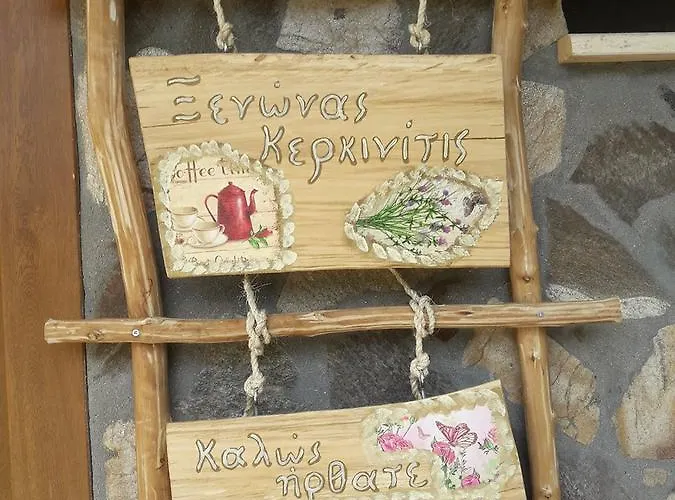 Ξενώνας
Κερκινίτις
Coffee Time
Καλώς
ήρθατε